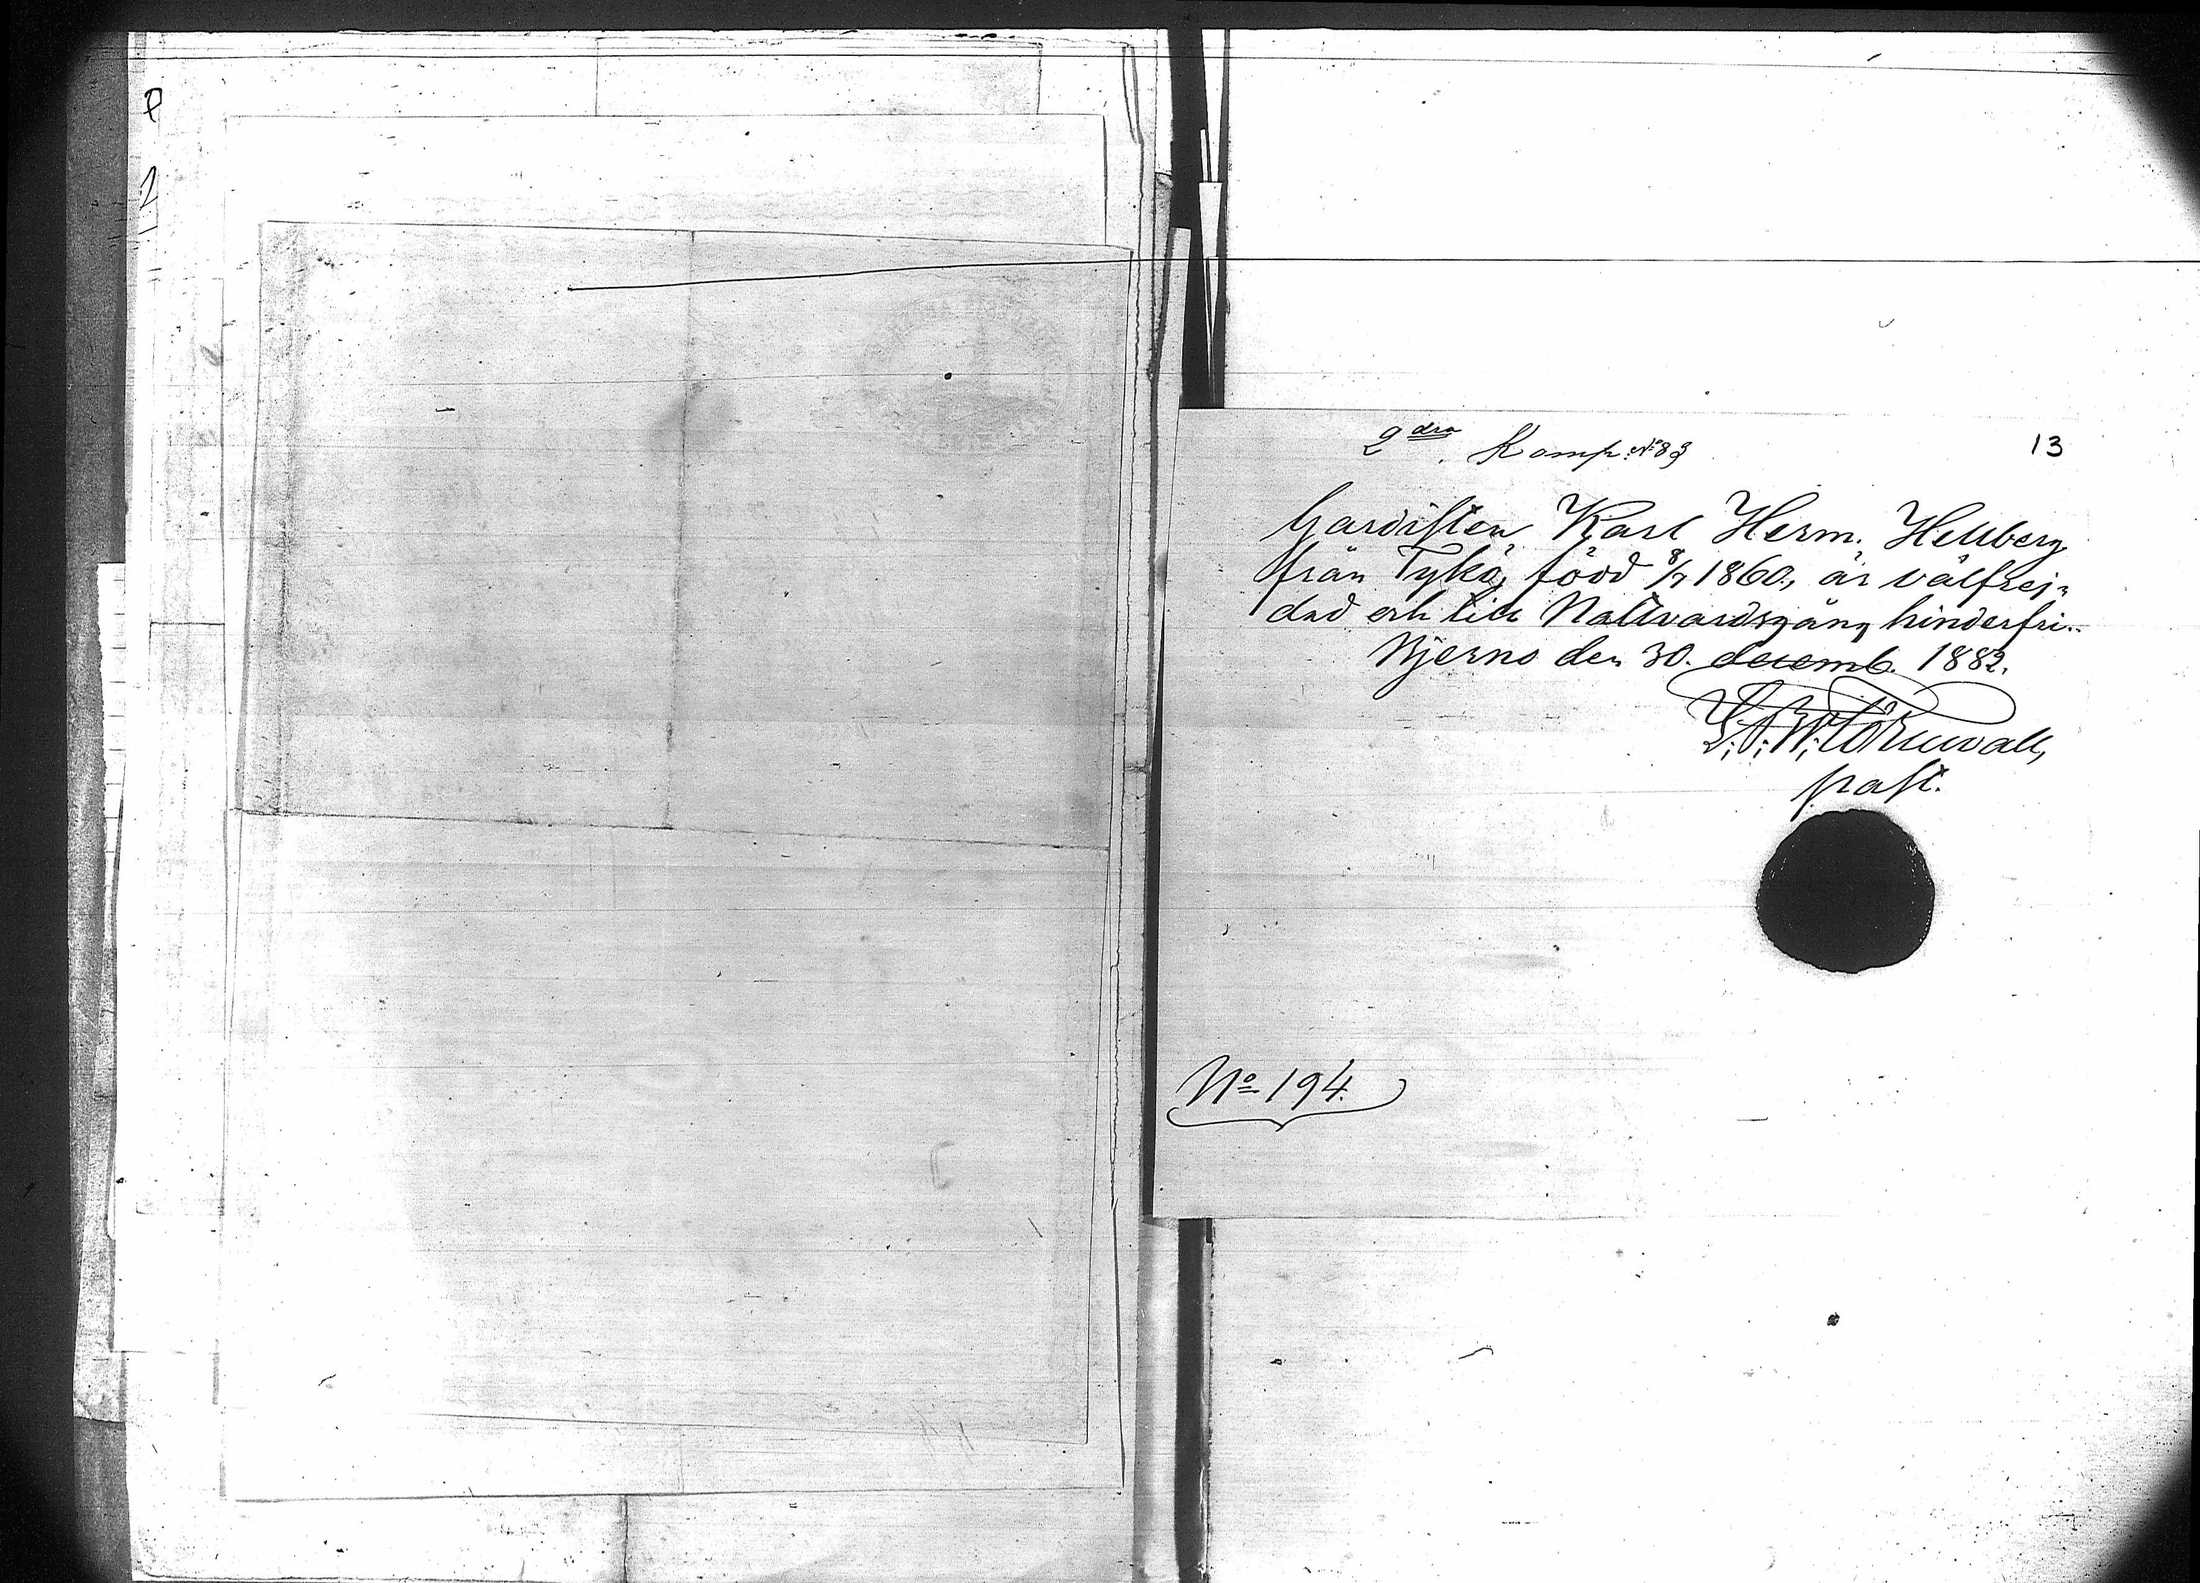 2dra Komp. №83
13
Gardisten Karl Herm. Hellberg
från Tykö, född 8/7 1860, är välfrej-
dad och till Nattvardsgång hinderfri.
Bjerno den 30. decemb. 1882.
Törnwall,
past.
No 194.